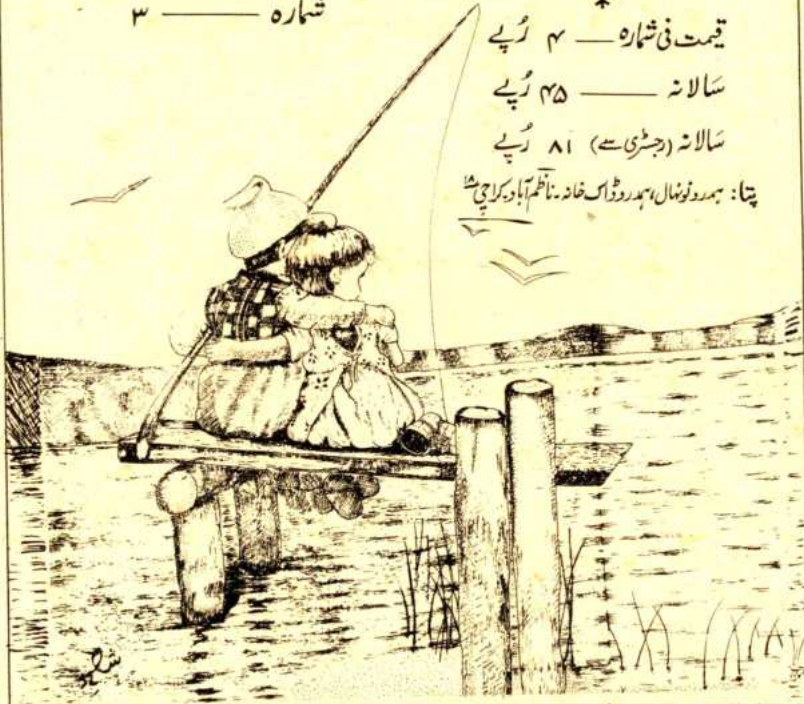 شمارہ ——— ۳
*
قیمت فی شمارہ — ۴ رُپے
سالانہ ——— ۴۵ رُپے
سالانہ (رجسٹری سے) ۸۱ رُپے
پتا: ہمدرد نونہال، ہمدرد ڈاک خانہ۔ ناظم آباد۔ کراچی ۱۸